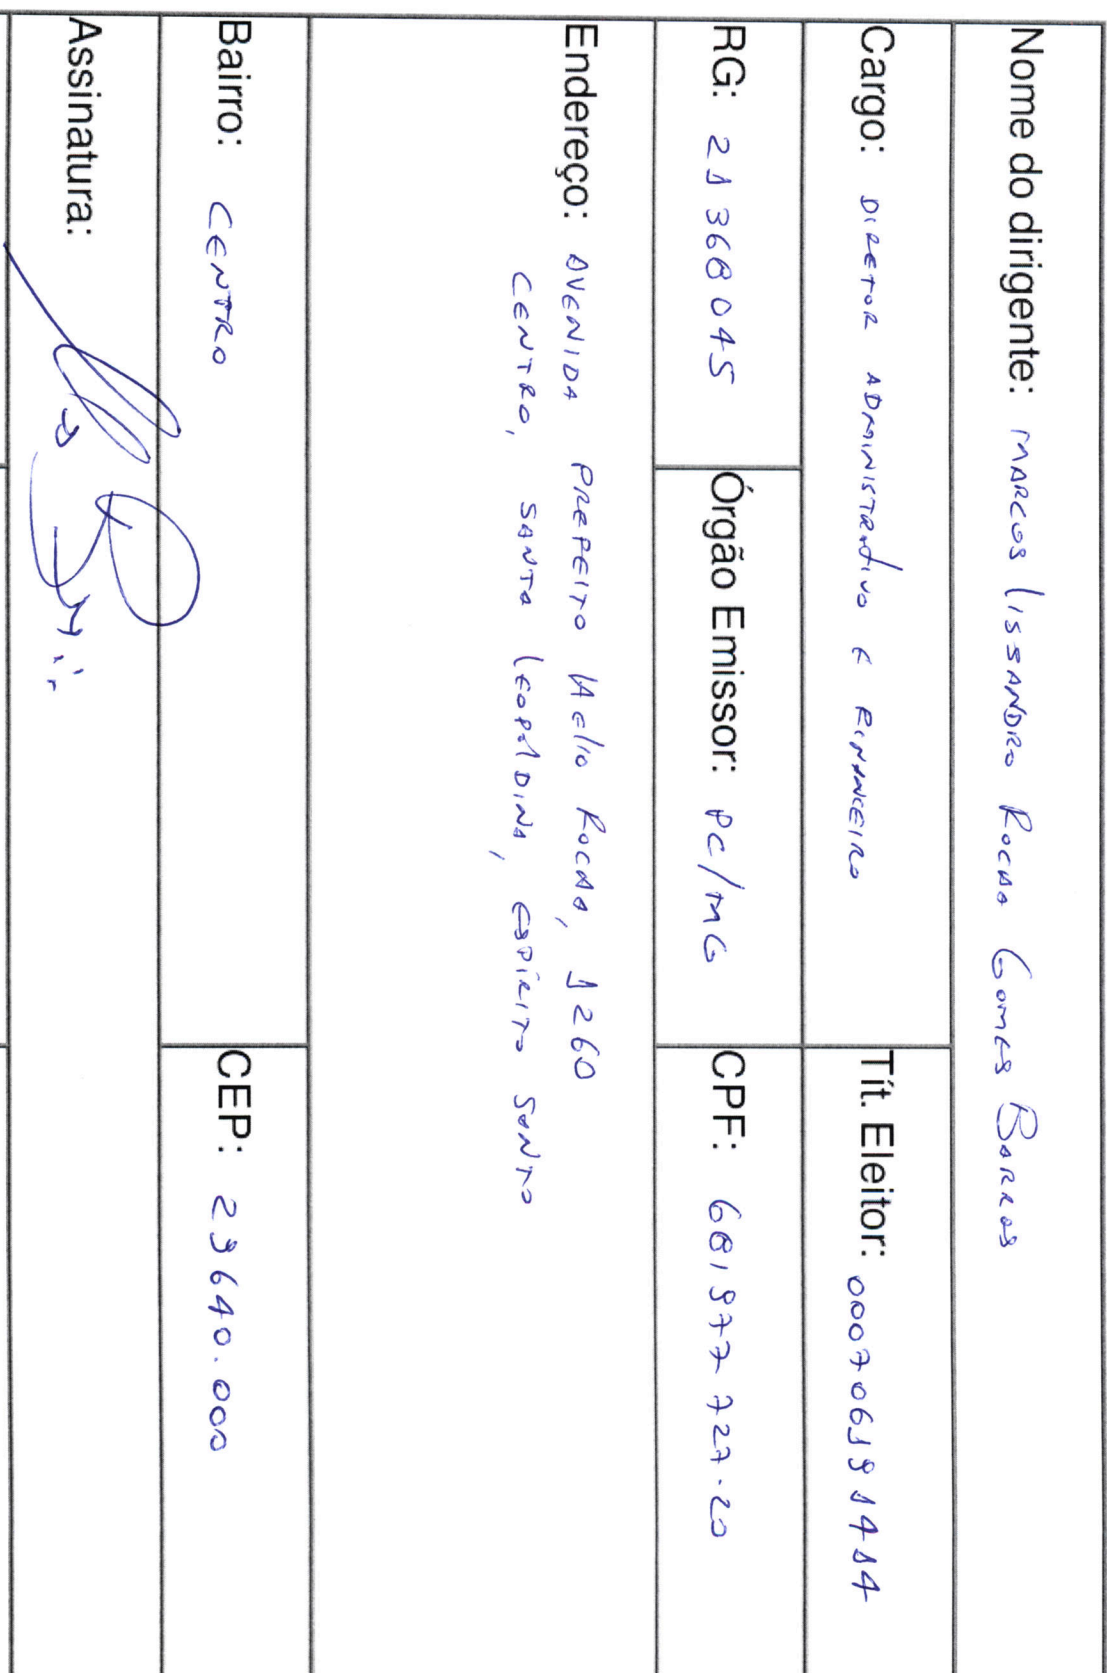 Nome do dirigente: MARCOS LISSANDRO ROCHA GOMES BARROS
Cargo: DIRETOR ADMINISTRATIVO E FINANCEIRO Tít. Eleitor: 000706191414
RG: 21368045 Órgão Emissor: PC/MG CPF: 681977727-20
Endereço: AVENIDA PREFEITO HÉLIO ROCHA, 1260
CENTRO, SANTA LEOPOLDINA, ESPÍRITO SANTO
Bairro: CENTRO CEP: 29640.000
Assinatura: